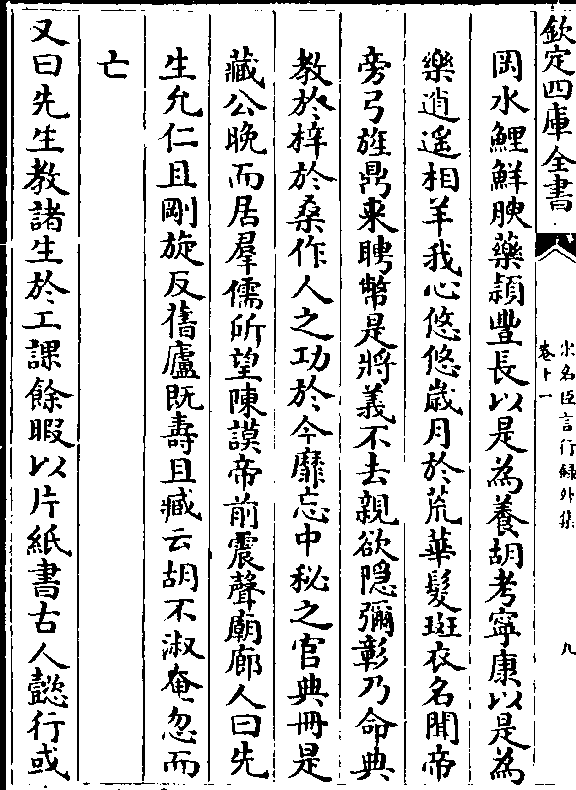 欽定四庫全書
宋名臣言行録外集
卷十一
九
岡水鯉鮮腴藥頴豐長以是為養胡考寧康以是為
樂逍遥相羊我心悠悠歲月於荒華髮斑衣名聞帝
旁弓旌鼎来聘幣是將義不去親欲隱彌彰乃命典
教於梓於桑作人之功於今靡忘中秘之官典冊是
藏公晚而居羣儒所望陳謨帝前震聲廟廊人曰先
生允仁且剛旋反舊廬既壽且臧云胡不淑奄忽而
亡
又曰先生教諸生於工課餘暇以片紙書古人懿行或